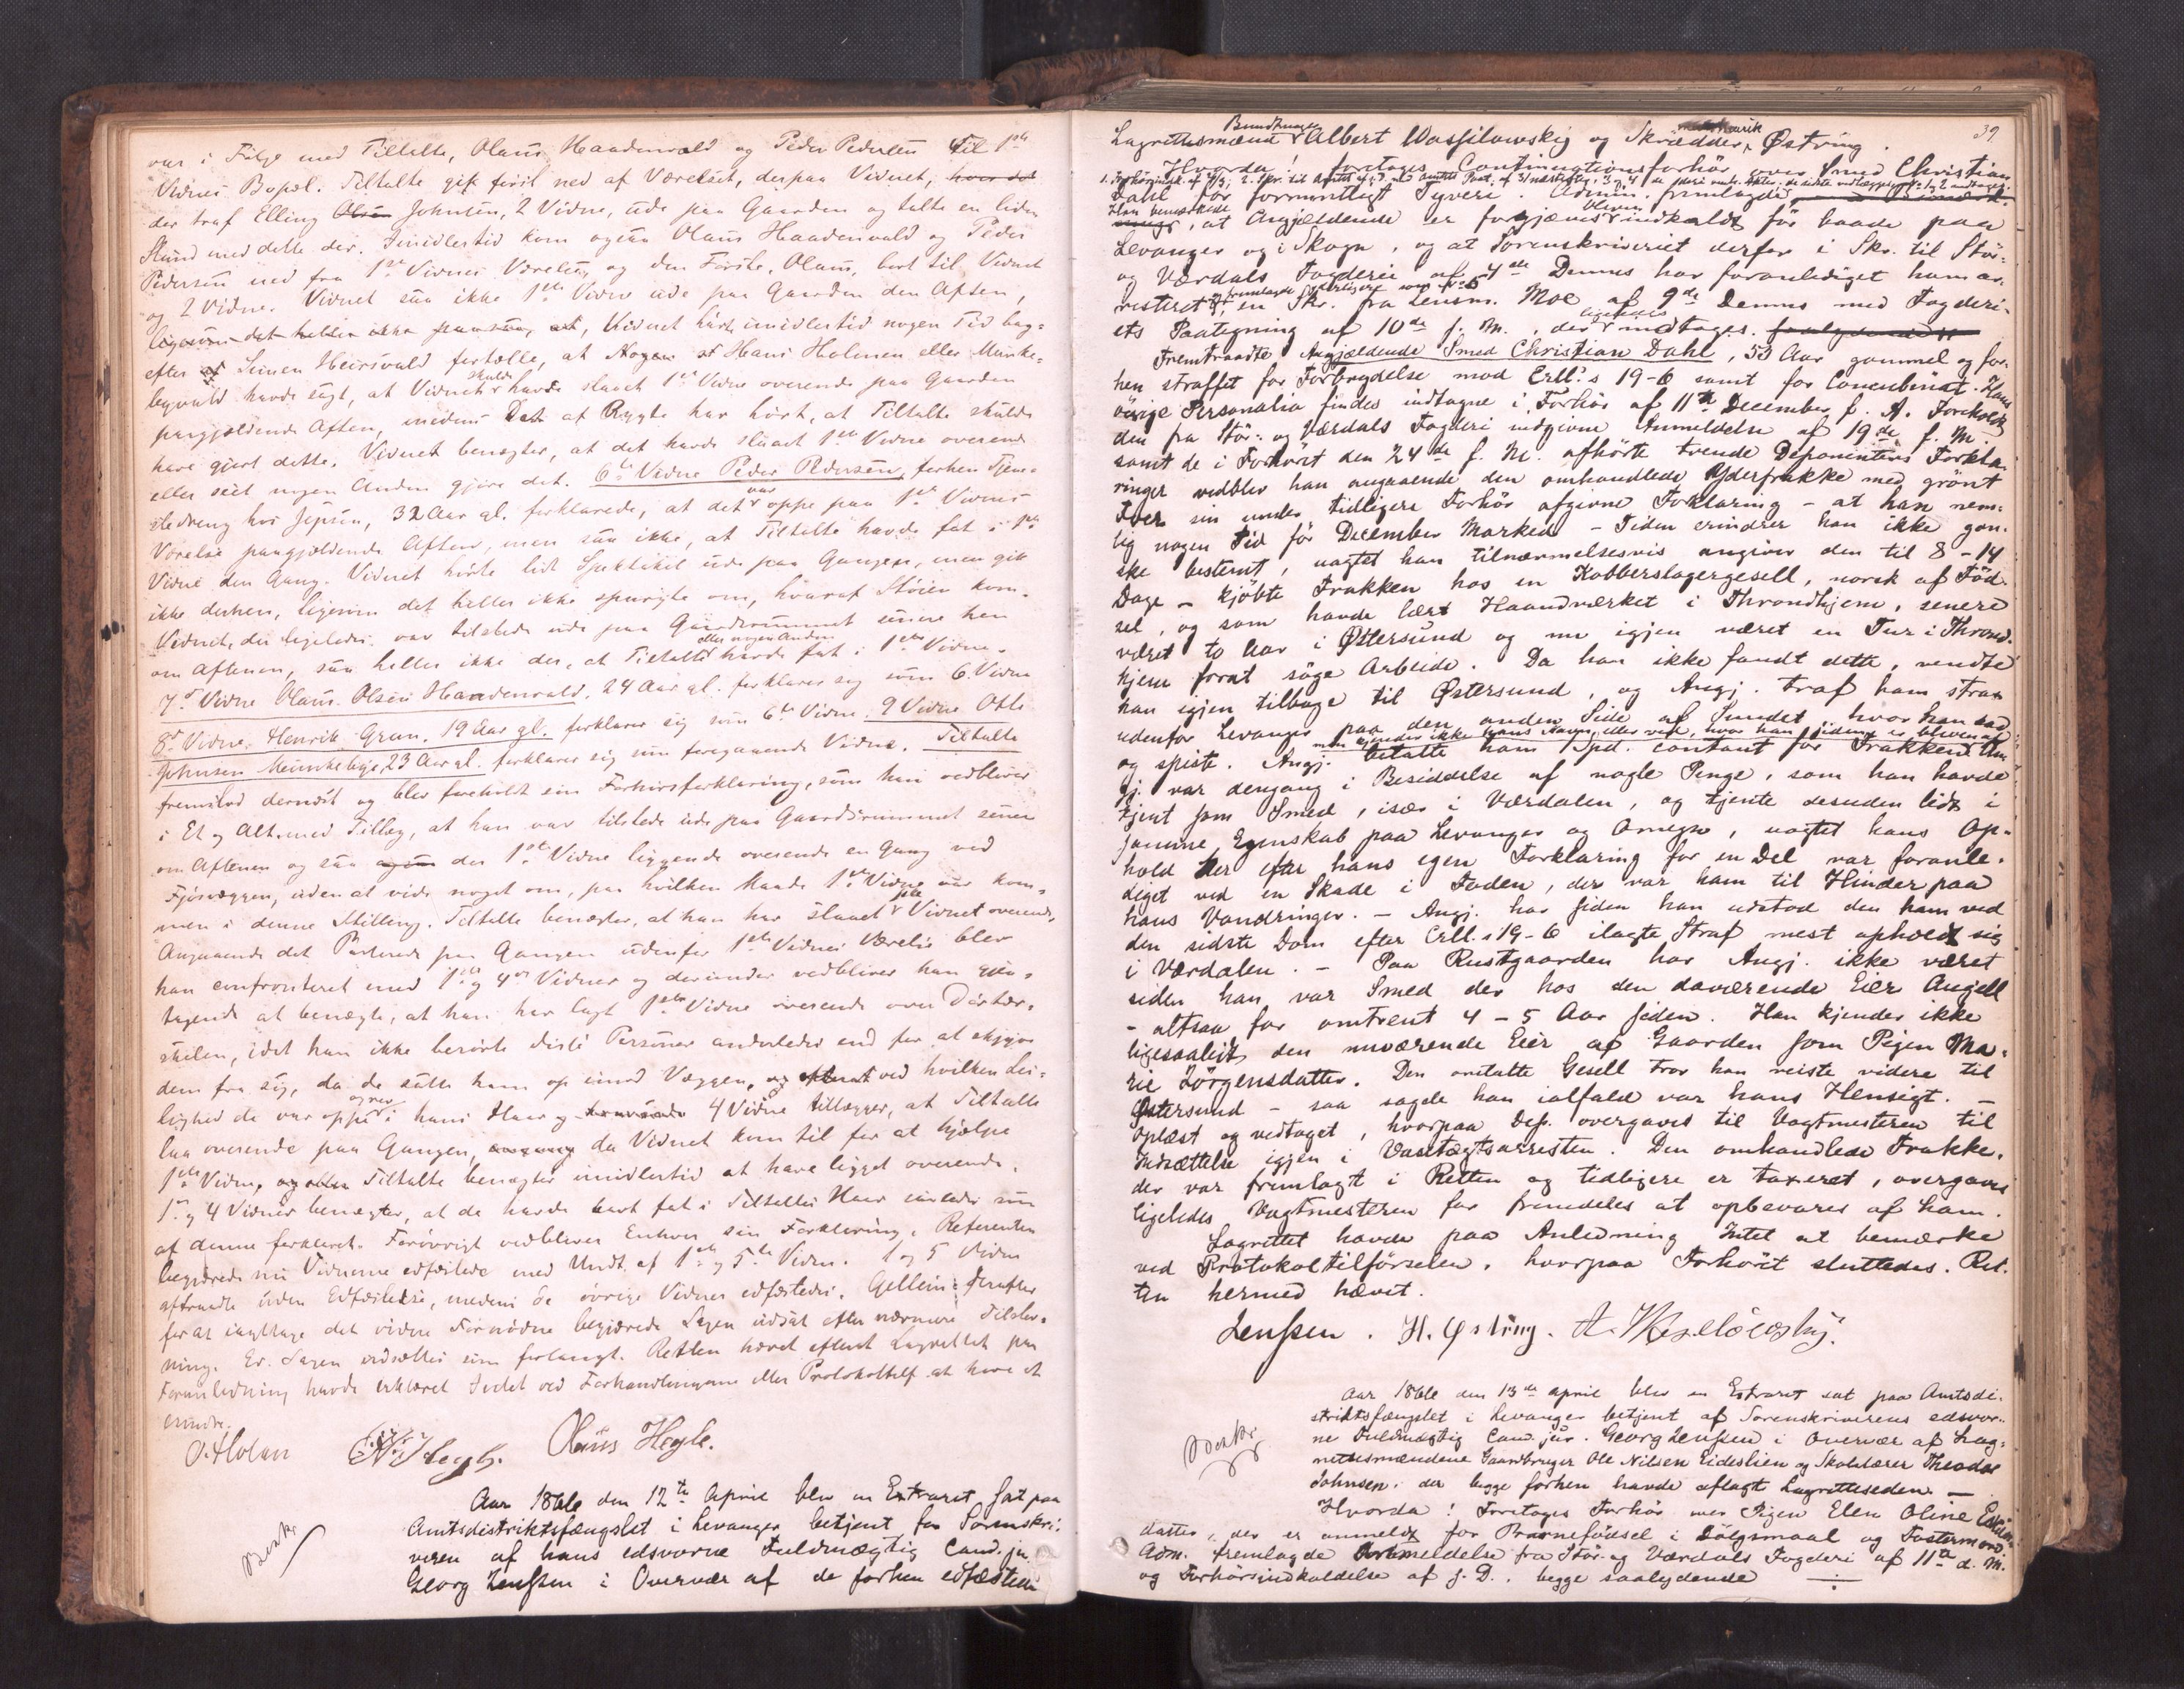 var i Følge med Tiltalte, Olaus Haadenvald og Peder Pedersen til 1ste
Vidnes Bopæl. Tiltalte gik først ned af Værelset, derpaa Vidnet,
der traf Elling Johnsen, 2 Vidne, ude paa Gaarden og talte en liden
Stund med dette der. Imidlertid kom ogsaa Olaus Haadenvald og Peder
Pedersen ned fra 1ste Vidnes Værelse, og den Første, Olaus, bort til Vidnet
og 2 Vidne. Vidnet saa ikke 1ste Vidne ude paa Gaarden den Aften,
ligesom det heller ikke, Vidnet hørte imidlertid nogen Tid bag-
efter Simen Heirsvald fortælle, at Hans Holmen eller Munke-
bygvald havde sagt, at Vidnet skulde have slaaet 1ste Vidne overende paa Gaarden
paagjældende Aften, medens Det af Rygte har hørt, at Tiltalte skulde
have gjort dette. Vidnet benægter, at det havde slaaet 1ste Vidne overende
eller seet nogen Anden gjøre det. 6te Vidne Peder Pedersen, forhen Tjene-
stedreng hos Jepsen, 32 Aar gl. forklarede, at det var oppe paa 1ste Vidnes
Værelse paagjældende Aften, men saa ikke, at Tiltalte havde fat i 1ste
Vidne den Gang. Vidnet hørte lidt Spektakel ude paa Gangen, men gik
ikke derhen, ligesom det heller ikke spurgte om, hvoraf Støien kom.
Vidnet, der ligeledes var tilstede ude paa Gaardsrummet senere hen
om Aftenen, saa heller ikke der, at Tiltalte eller nogen Anden havde fat i 1ste Vidne.
7de Vidne Olaus Olsen Haadenvald, 24 Aar gl. forklarer sig som 6 Vidne
8de Vidne Henrik Gran, 19 Aar gl. forklarer sig som 6te Vidne. 9 Vidne Otto
Johnsen Munkebyje, 23 Aar gl. forklarer sig som foregaaende Vidne. Tiltalte
fremstod dernæst og blev foreholdt sin Forhørsforklaring, som han vedbliver
i Et og Alt, med Tillæg, at han var tilstede ude paa Gaardsrummet senere
om Aftenen og saa der 1ste Vidne liggende overende en Gang ved
Fjøsvæggen, uden at vide noget om, paa hvilken Maade 1ste Vidne var kom-
men i denne Stilling. Tiltalte benægter, at han har slaaet Vidnet overende,
Angaaende det Passerede paa Gangen udenfor 1ste Vidnes Værelse blev
han confronteret med 1ste og 4de Vidner og derunder vedbliver han gjen-
tagende at benægte, at han har lagt 1ste Vidne overende over Dørtær-
skelen, idet han ikke berørte disse Personer anderledes end for at skyve
dem fra sig, da de satte ham op imod Væggen, ved hvilken Lei-
lighed de var oppe og rev i hans Haar 4 Vidne tillægger, at Tiltalte
laa overende paa Gangen, da Vidnet kom til for at hjælpe
1ste Vidne, Tiltalte benægter imidlertid at have ligget overende,
1ste og 4 Vidner benægter, at de havde havt fat i Tiltaltes Haar saaledes som
af denne forklaret. Forøvrigt vedbliver Enhver sin Forklaring. Referenten
begjærede nu Vidnerne edfæstede med Undt. af 1ste og 5te Vidne. 1 og 5 Vidne
aftraadte uden Edfæstelse, medens de øvrige Vidner edfæstedes. Gellein derefter
for at iagttage det videre Fornødne begjærede Sagen udsat efter nærmere Tilstev-
ning. Er. Sagen udsættes som forlangt. Retten hævet efterat Lagrettet paa
Foranledning havde erklæret Intet ved Forhandlingerne eller Protokollatf. at have at
erindre.
O. Holan Olaus Hegle.
Aar 1866 den 12te April blev en Extraret sat paa
Amtsdistriktsfængslet i Levanger betjent for Sorenskri-
veren af hans edsvorne Fuldmægtig Cand. jur.
Georg Lenssen i Overvær af de forhen edfæstede
39
Lagrettesmænd Bundtmager Albert Wassilowsky og Skrædder Henrik Østring.
Hvorda! foretoges Continuationsforhør over Smed Christian
Dahl for formentligt Tyveri. Admin. fremlagde
Han bemærkede, at Angjældende er forgjæves bleven indkaldt før baade paa
Levanger og i Skogn, og at Sorenskriveriet derfor i Skr. til Stør-
og Værdals Fogderie af 4de Dennes har foranlediget ham ar-
resteret, en Skr. fra Lensm. Moe af 9de Dennes med Fogderi-
ets Paategning af 10de f. M., der ligeledes indtages.
Fremtraadte Angjældende Smed Christian Dahl, 53 Aar gammel og for-
hen straffet for Forbrydelse mod Crll.s 19-6 samt for Concubinat. Hans
øvrige Personalia findes indtagne i Forhør af 11te December f. A. Foreholdt
den fra Stør- og Værdals Fogderi indgivne Anmeldelse af 19de f. M.
samt de i Forhøret den 24de f. M. afhørte trende Deponenters Forkla-
ringer vedblev han angaaende den omhandlede Yderfrakke med grønt
Foer sin under tidligere Forhør afgivne Forklaring - at han nem-
lig nogen Tid før December Marked - Tiden erindrer han ikke gan-
ske bestemt, uagtet han tilnærmelsesvis angiver den til 8-14
Dage - kjøbte Frakken hos en Kobberslagergesell, norsk af Fød-
sel, og som havde lært Haandværket i Throndhjem, senere
været to Aar i Østersund og nu igjen været en Tur i Thrond-
hjem forat søge Arbeide. Da han ikke fandt dette, vendte
han igjen tilbage til Østersund, og Angj. traf ham strax
udenfor Levanger paa den anden Side af Sundet, hvor han sad
og spiste. Angj. betalte ham 1 Spd. contant for Frakken. An-
gj. var dengang i Besiddelse af nogle Penge, som han havde
tjent som Smed, især i Værdalen, og tjente desuden lidt i
samme Egenskab paa Levanger og Omegn, uagtet hans Op-
hold der efter hans egen Forklaring for en Del var foranle-
diget ved en Skade i Foden, der var ham til Hinder paa
hans Vandringer. - Angj. har siden han udstod den ham ved
den sidste Dom efter Crll.s 19-6 ilagte Straf mest opholdt sig
i Værdalen. - Paa Rustgaarden har Angj. ikke været
siden han var Smed der hos den daværende Eier Angell
- altsaa for omtrent 4-5 Aar siden. Han kjender ikke
ligesaalidt den nuværende Eier af Gaarden som Pigen Ma-
rie Jørgensdatter. Den omtalte Gesell tror han reiste videre til
Østersund - saa sagde han ialfald var hans Hensigt. -
Oplæst og vedtaget, hvorpaa Dep. overgaves til Vagtmesteren til
Indsættelse igjen i Varetægtsarresten. Den omhandlede Frakke,
der var fremlagt i Retten og tidligere er taxeret, overgaves
ligeledes Vagtmesteren for fremdeles at opbevares af ham.
Lagrettet havde paa Anledning Intet at bemærke
ved Protokoltilførselen, hvorpaa Forhøret sluttedes. Ret-
ten hermed hævet.
Lenssen. H. Østring. A. Wassilowsky.
Aar 1866 den 13de April blev en Extraret sat paa Amtsdi-
striktsfængslet i Levanger betjent af Sorenskriverens edsvor-
ne Fuldmægtig Cand. jur. Georg Lenssen i Overvær af Lag-
rettesmændene Gaardbruger Ole Nilsen Eideslien og Skolelærer Theodor
Johnsen, der begge forhen havde aflagt Lagretteseden. -
Hvorda! Foretoges Forhør over Pigen Elen Oline
datter, der er anmeldt for Barnefødsel i Dølgsmaal og Fostermord
Adm. fremlagde Anmeldelse fra Stør- og Værdals Fogderi af 11te d. M.
og Forhørsindkaldelse af s. D., begge saalydende